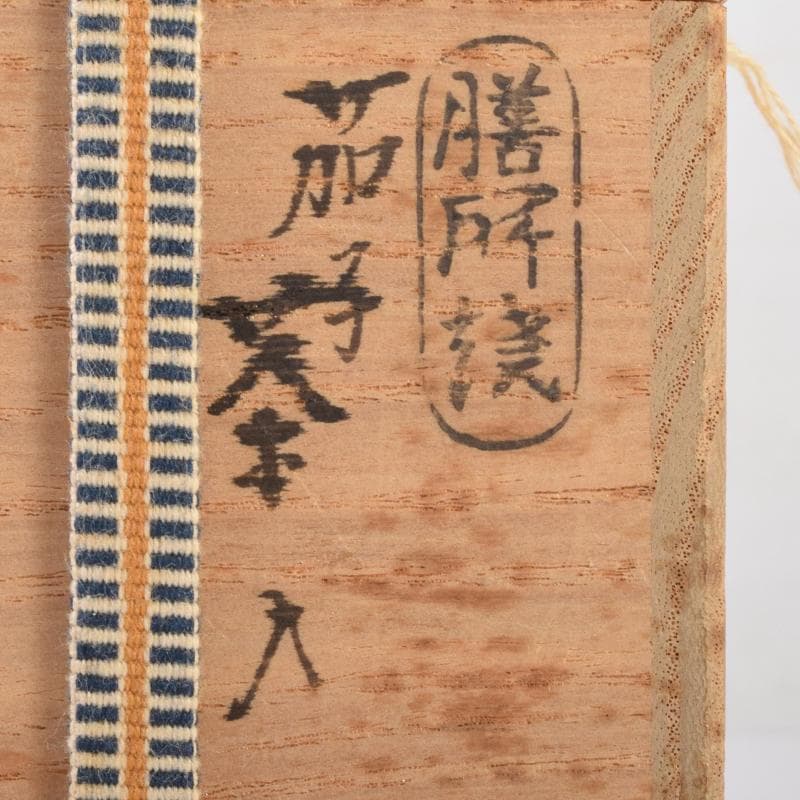 膳所焼
茄子茶入